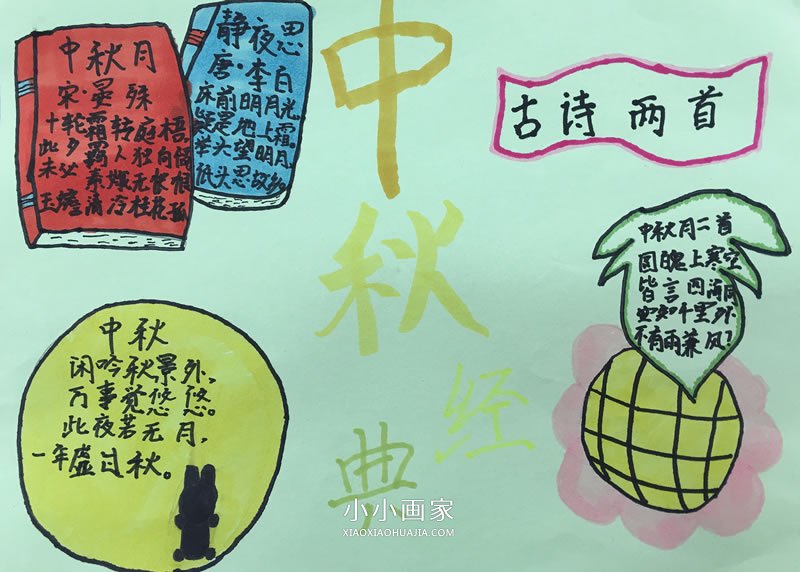 中秋月
宋·晏殊
十轮霜转庭梧
此夕羁人独向隅
未必素娥无怅恨
玉蟾清冷桂花孤
静夜思
唐·李白
床前明月光
疑是地上霜。
举头望明月,
低头思故乡
中秋经典
古诗两首
中秋月二首
圆魄上寒空
皆言四海同
安知千里外
不有雨兼风?
中秋
闲吟秋景外,
万事觉悠悠。
此夜若无月,
一年虚过秋。
小小画家
XIAOXIAOHUAJIA.COM